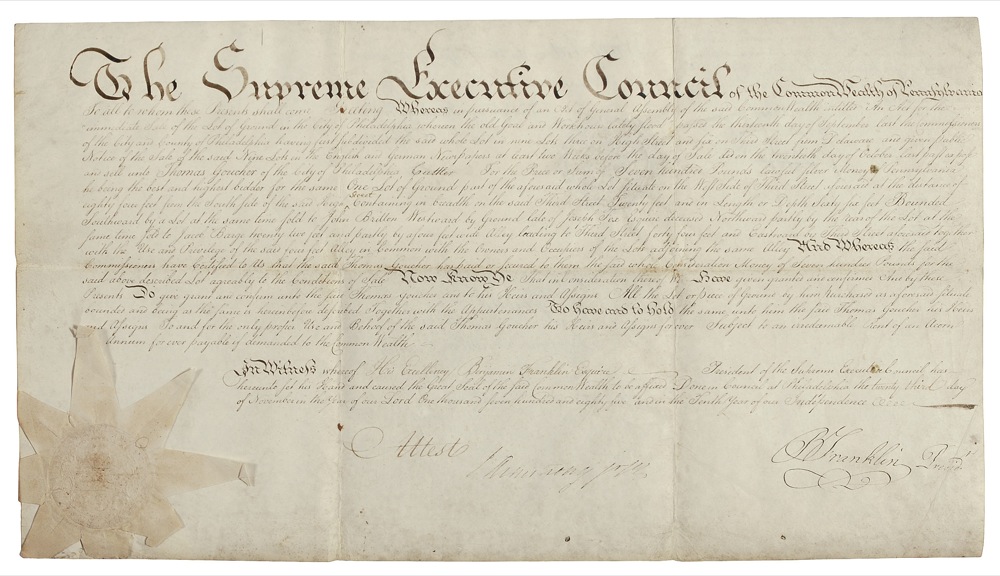 The Supreme Executive Council of the CommonWealth of Pennsylvania
To all to whom these Presents shall come Greeting Whereas in pursuance of an Act of General Assembly of the said CommonWealth Intitled An Act for the
immediate Sale of the Lot of Ground in the City of Philadelphia whereon the old Goal and Workhouse lately stood passed the thirteenth day of September last the Commissioners
of the City and County of Philadelphia having first subdivided the said whole Lot in nine Lots three on High Street and six on Third Street from Delaware and given public
Notice of the Sale of the said Nine Lots in the English and German Newspapers at least two Weeks before the day of Sale did on the twentieth day of October last past
and sell unto Thomas Goucher of the City of Philadelphia For the Price or Sum of Seven hundred Pounds lawful silver Money of Pennsylvania
he being the best and highest bidder for the same One Lot of Ground part of the aforesaid whole Lot situate on the West side of Third Street aforesaid at the distance of
eighty four feet from the South side of the said Containing in breadth on the said Third Street Twenty feet and in Length or Depth Sixty six feet Bounded
Southward by a Lot at the same time sold to John Westward by Ground late of Joseph Fox Esquire deceased Northward partly by the rear of the Lot at the
same time sold to Jacob Barge twenty two feet and partly by a four feet wide Alley leading to Third Street forty four feet and Eastward by Third Street aforesaid together
with the Use and Privilege of the said four feet Alley in Common with the Owners and Occupiers of the Lots adjoining the same Alley And Whereas the said
Commissioners have Certified to Us that the said Thomas Goucher hath paid or secured to them the said whole Consideration Money of Seven hundred Pounds for the
said above described Lot agreeably to the Conditions of Sale Now Know Ye That in Consideration thereof We Have given granted and confirmed And by these
Presents Do give grant and confirm unto the said Thomas Goucher and to his Heirs and Assigns All the Lot or piece of Ground by him Purchased as aforesaid situate
bounded and being as the same is hereinbefore described Together with the Appurtenances To have and to hold the same unto him the said Thomas Goucher his Heirs
and Assigns To and for the only proper Use and Behoof of the said Thomas Goucher his Heirs and Assigns for ever Subject to an irredeemable Rent of an Acorn
annum for ever payable if demanded to the Common Wealth
In Witness whereof His Excellency Benjamin Franklin Esquire President of the Supreme Executive Council has
hereunto set his Hand and caused the Great Seal of the said CommonWealth to be affixed Done in Council at Philadelphia the twenty third day
of November in the Year of our Lord One thousand seven hundred and eighty five and in the Tenth Year of our Independence
Attest
J Armstrong junr
B Franklin Presidt